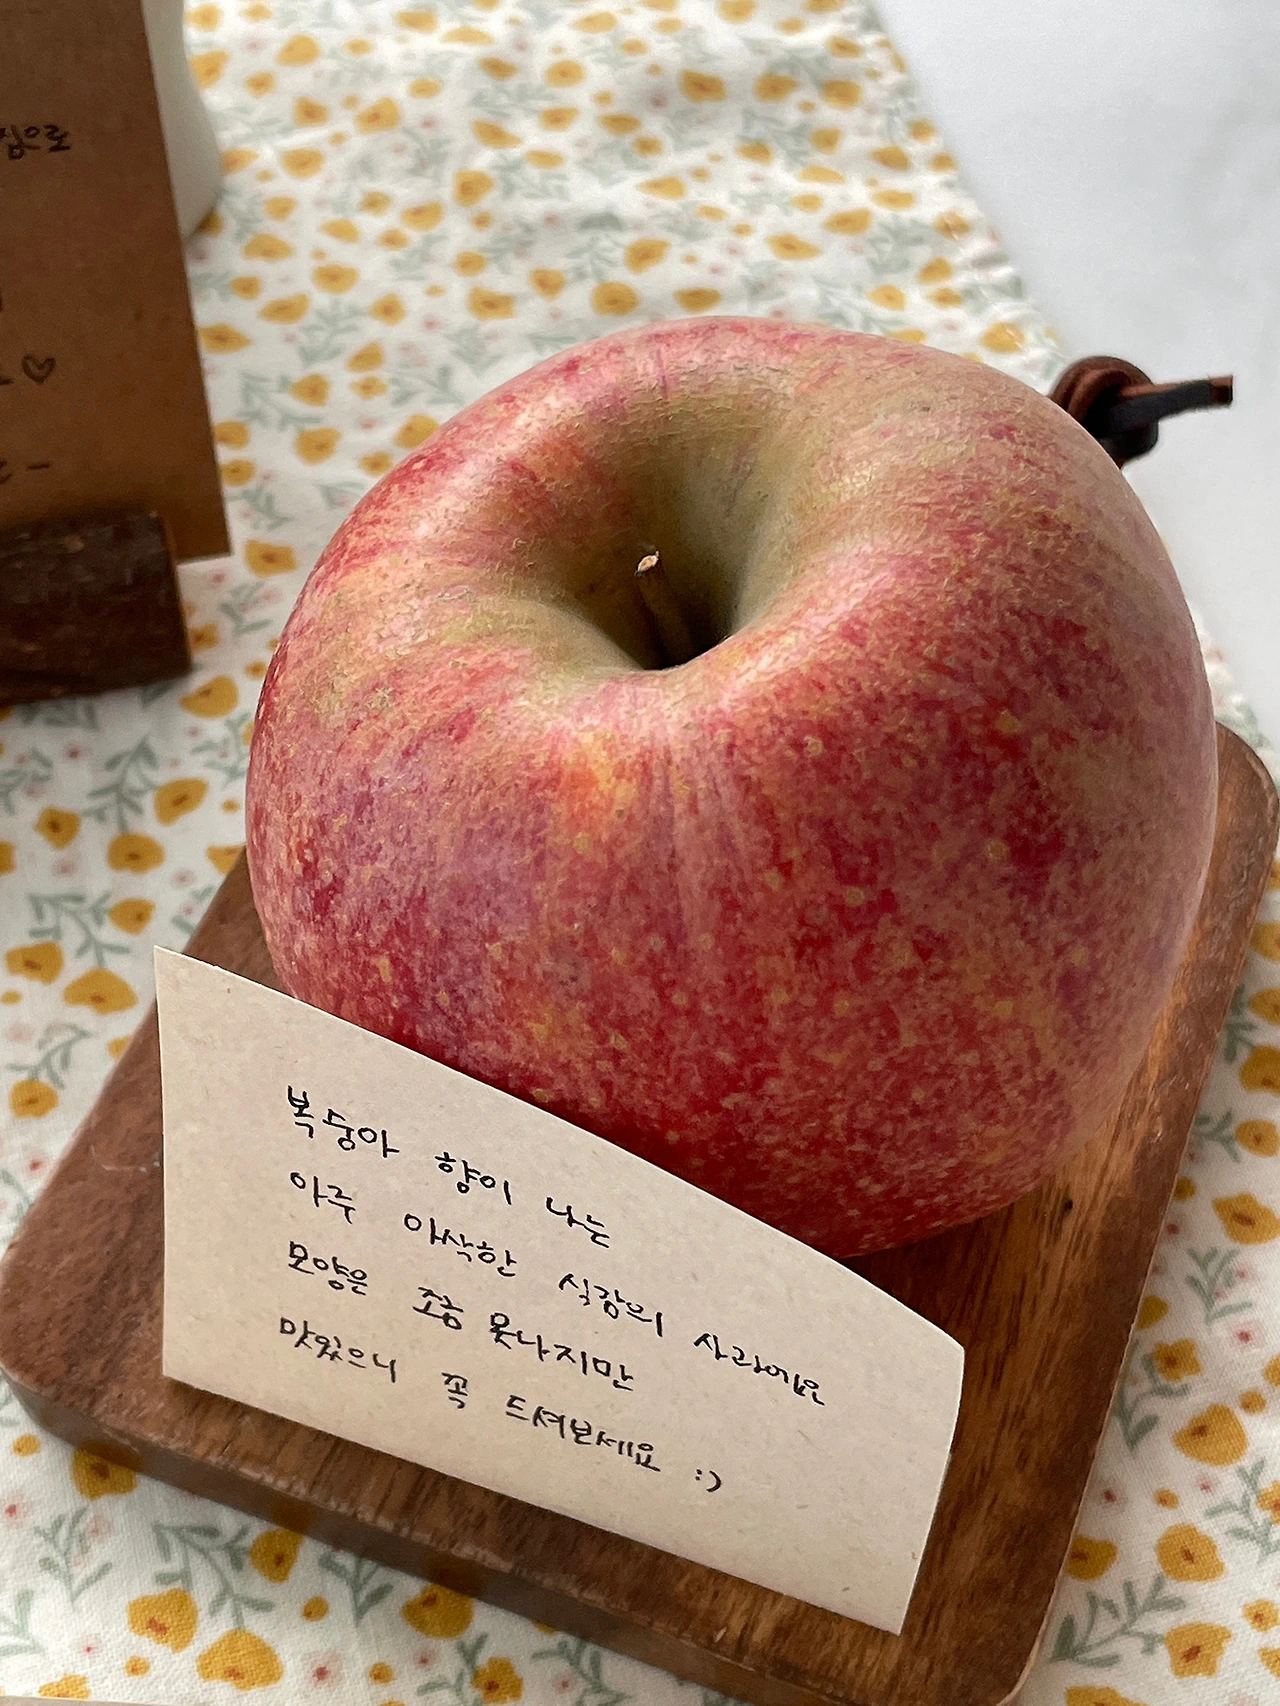 집으로
♡
복숭아 향이 나는
아주 아삭한 식감의 사과에요
모양은 조금 못나지만
맛있으니 꼭 드셔보세요 :)